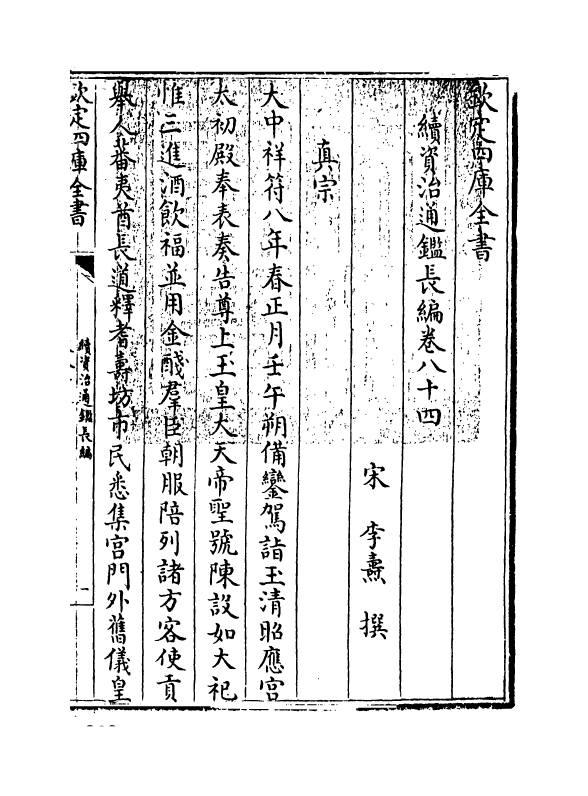 欽定四庫全書
續資治通鑑長編卷八十四
宋 李燾 撰
真宗
大中祥符八年春正月壬午朔備鑾駕詣玉清昭應宫
太初殿奉表奏告尊上玉皇大天帝聖號陳設如大祀
惟三進酒飲福並用金醆羣臣朝服陪列諸方客使貢
舉人蕃夷酋長道釋耆壽坊市民悉集宫門外舊儀皇
欽定四庫全書
續資治通鑑長編